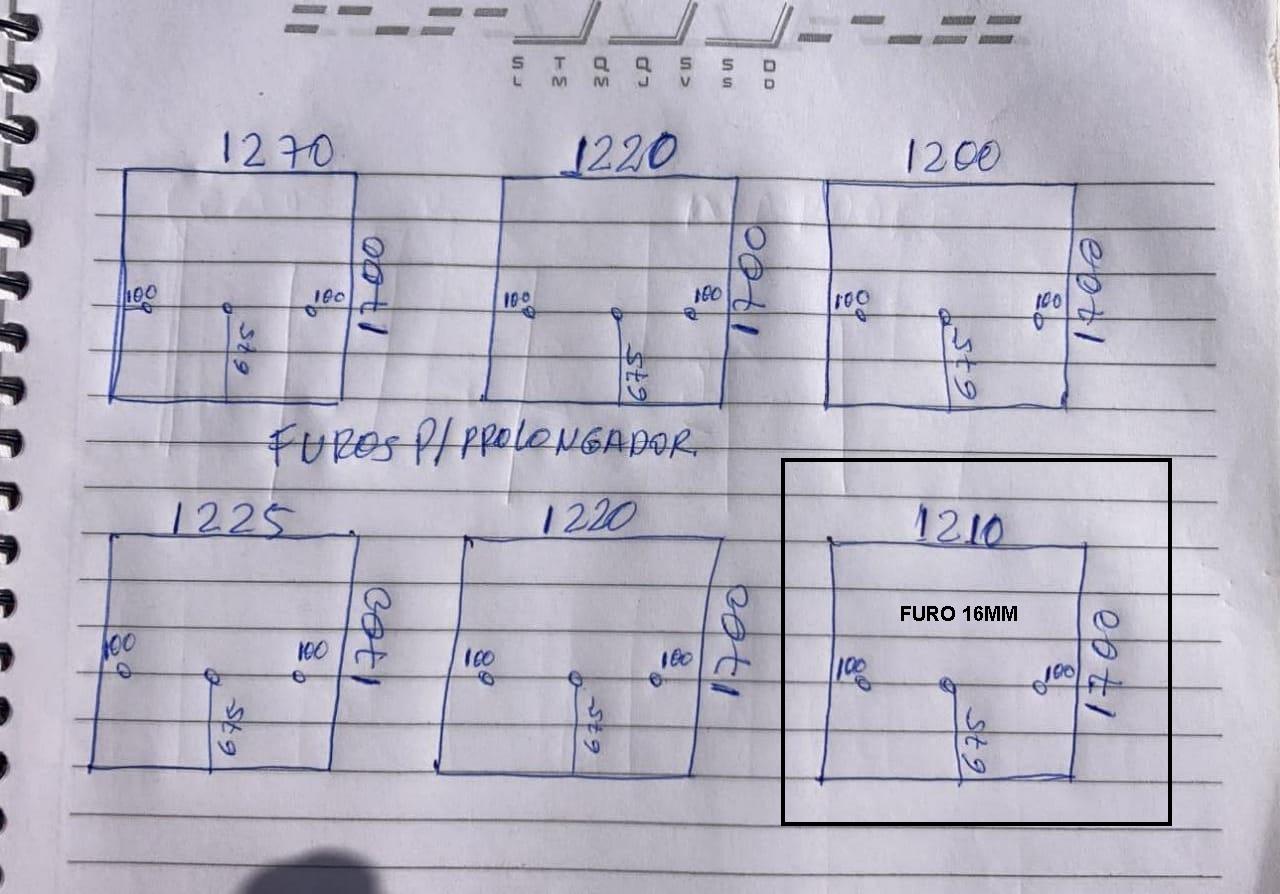 S T Q Q S S D
L M M J V S D
1270 1220 1200
1700 1700 1700
100 100 100 100 100 100
675 675 675
FUROS P/ PROLONGADOR.
1225 1220 1210
FURO 16MM
1700 1700 1700
100 100 100 100 100 100
675 675 675